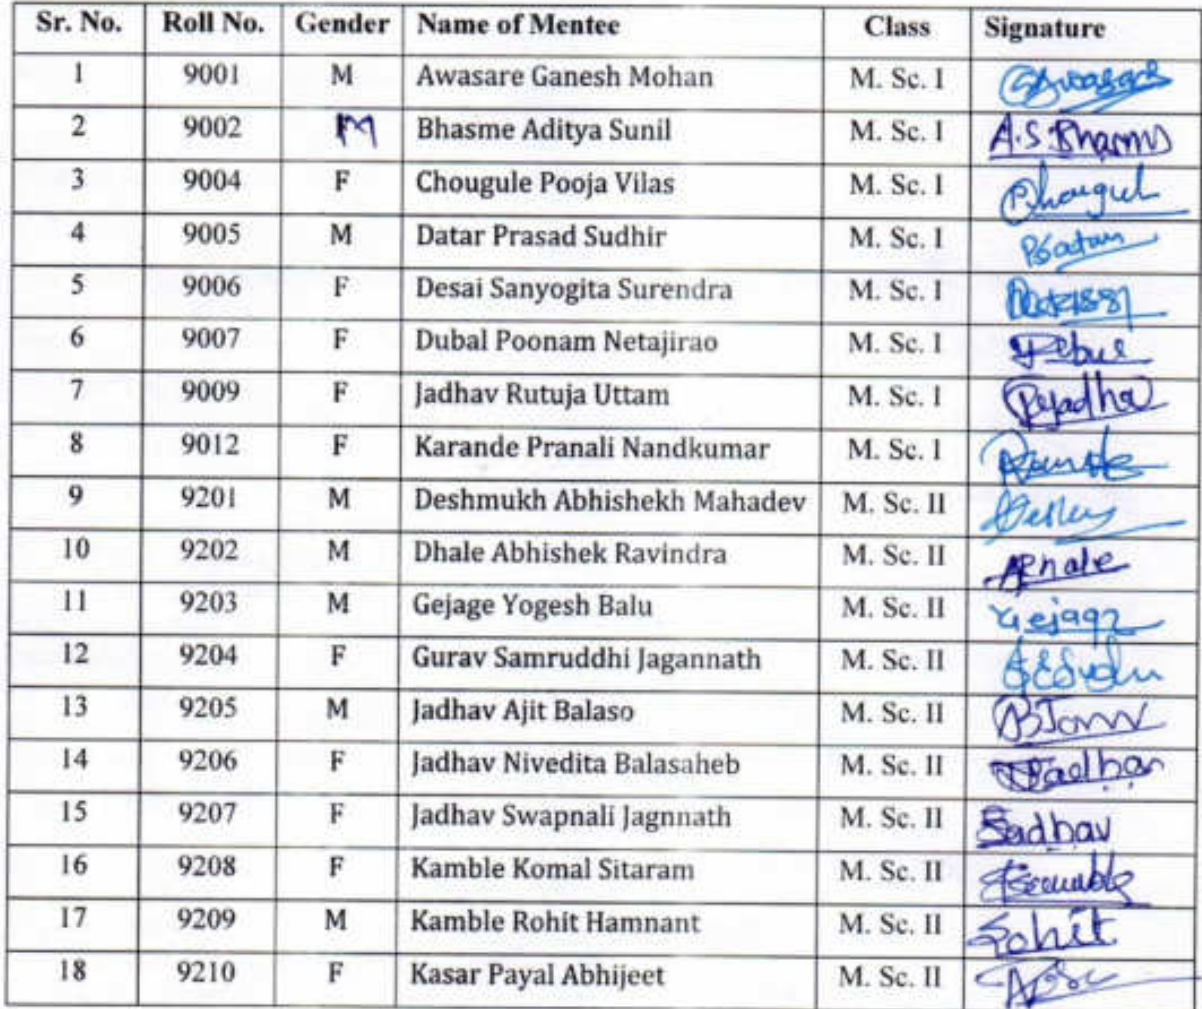 Sr. No. Roll No. Gender Name of Mentee Class Signature
1 9001 M Awasare Ganesh Mohan M. Sc. I
2 9002 M Bhasme Aditya Sunil M. Sc. I A.S.
3 9004 F Chougule Pooja Vilas M. Sc. I
4 9005 M Datar Prasad Sudhir M. Sc. I
5 9006 F Desai Sanyogita Surendra M. Sc. I
6 9007 F Dubal Poonam Netajirao M. Sc. I
7 9009 F Jadhav Rutuja Uttam M. Sc. I
8 9012 F Karande Pranali Nandkumar M. Sc. I
9 9201 M Deshmukh Abhishekh Mahadev M. Sc. II
10 9202 M Dhale Abhishek Ravindra M. Sc. II
11 9203 M Gejage Yogesh Balu M. Sc. II
12 9204 F Gurav Samruddhi Jagannath M. Sc. II
13 9205 M Jadhav Ajit Balaso M. Sc. II
14 9206 F Jadhav Nivedita Balasaheb M. Sc. II
15 9207 F Jadhav Swapnali Jagnnath M. Sc. II
16 9208 F Kamble Komal Sitaram M. Sc. II
17 9209 M Kamble Rohit Hamnant M. Sc. II Rohit
18 9210 F Kasar Payal Abhijeet M. Sc. II